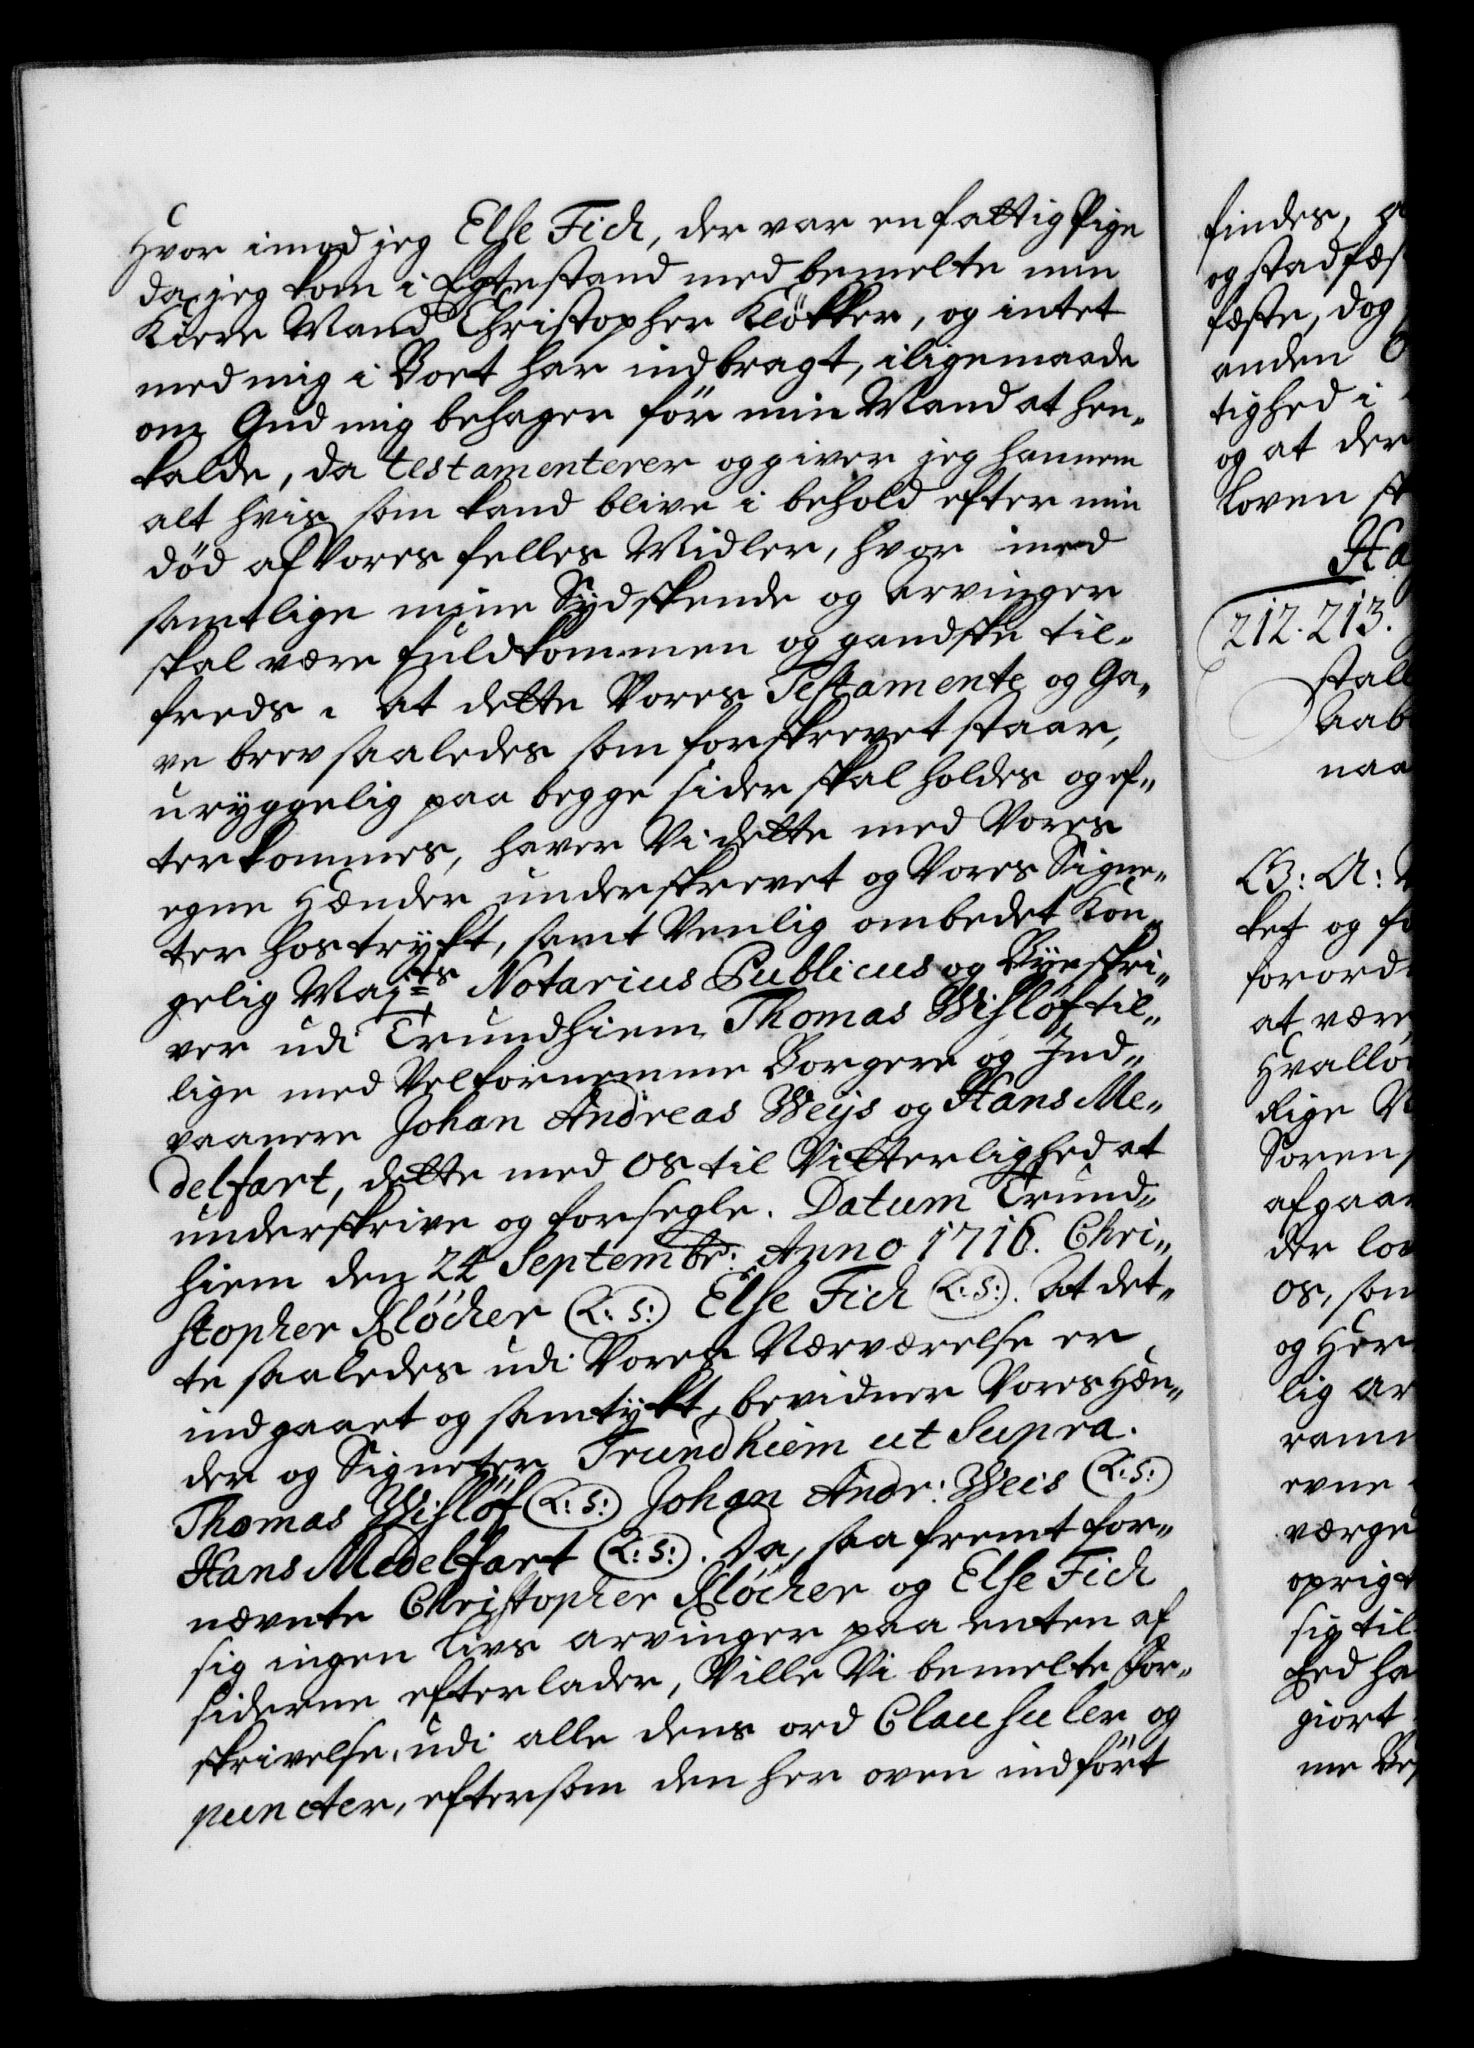 Hvor imod jeg Else Fich, der var en fattig Pige
da jeg kom i Egtestand med bemelte min
Kiere Mand Christopher Klökker, og intet
med mig i Boet har indbragt, iligemaade
om Gud mig behager för min Mand at hen„
kalde, da testamenterer og giver jeg hannem
alt hvis som kand blive i behold efter min
död af Vores felles Midler, hvor med
samtlige mine Sydskende og arvinger
skal være fuldkommen og gandske til„
freds. at dette Vores Testamente og Ga„
ve brev saaledes som forskrevet staar,
uryggelig paa begge sider skal holdes og ef„
terkommes, haver Vi dette med Vores
egne Hænder underskrevet og Vores Signe„
ter hostrykt, samt Venlig ombedet Kon„
gelig Majts Notarius Publicus og Byeskri„
ver udi Trundhiem Thomas Wislöf til„
lige med Velfornemme Borgere og Ind„
vaanere Johan Andreas Weijs og Hans Me„
delfart, dette med os til Vitterlighed at
underskrive og forsegle. Datum Trund„
hiem den 24 Septembr: Anno 1716. Chri„
stopher Klöcher (L:S:) Else Fich (L:S:). At det„
te saaledes udi Vores Nærværelse er
indgaaet og samtykt, bevidner Vores Hæn„
der og Signeter Trundhiem ut Supra.
Thomas Wislöf (L:S:) Johan Andr: Weis (L:S:)
Hans Medelfart (L:S:). Da, saafremt for„
nævnte Christopher Klöcher og Else Fich
sig ingen livs arvinger paa enten af
siderne efterlader, Ville Vi bemelte For„
skrivelse, udi alle dens ord Clausuler og
puncter, eftersom den her oven indfört
findes,
og stadfæs
fæste, dog
anden
tighed i
og at der
loven st
Ha
212. 213.
stall
Aab
naa
B: A:
ket og fo
forord
at være
Hvallö
Rige
Soren
afgaar
der lov
os, som
og Her
lig ar
ramm
evne
værge
oprigt
sig til
Eed ha
giort
me Bes